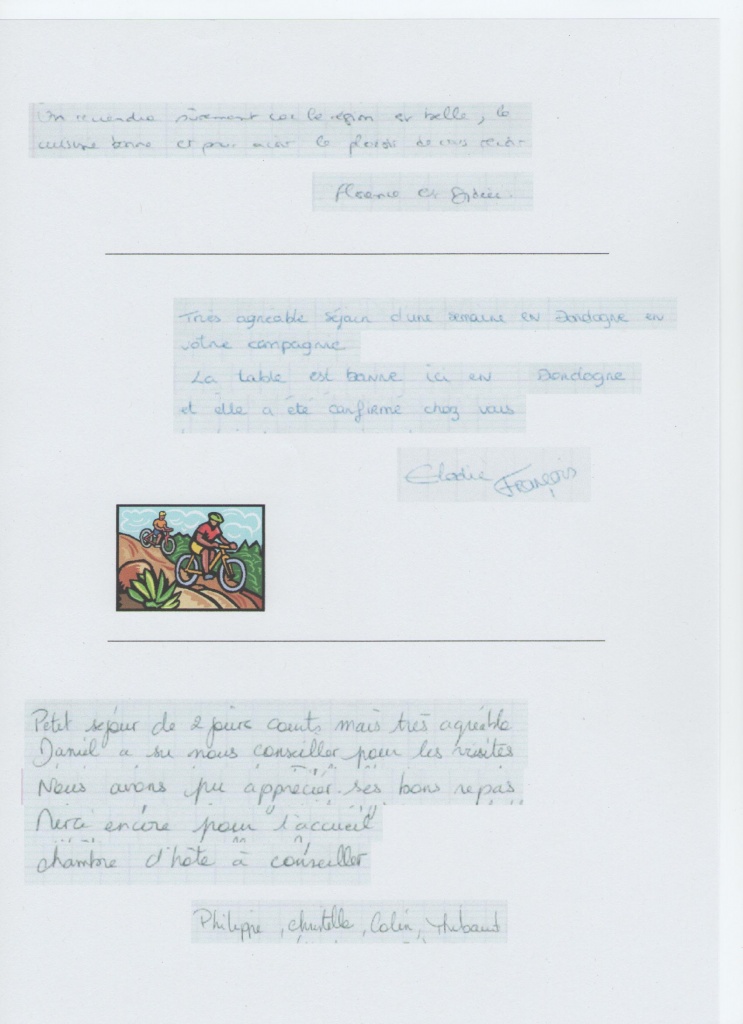 On reviendra sûrement car la région est belle, la
cuisine bonne et pour avoir le plaisir de vous revoir
Florence et Didier.
Très agréable séjour d'une semaine en Dordogne en
votre campagnie
La table est bonne ici en Dordogne
et elle a été confirmé chez vous
Elodie François
Petit séjour de 2 jours courts mais très agréable
Daniel a su nous conseiller pour les visites
Nous avons pu apprécier ses bons repas
Merci encore pour l'accueil
chambre d'hôte à conseiller
Philippe, Christelle, Colin, Thibaud